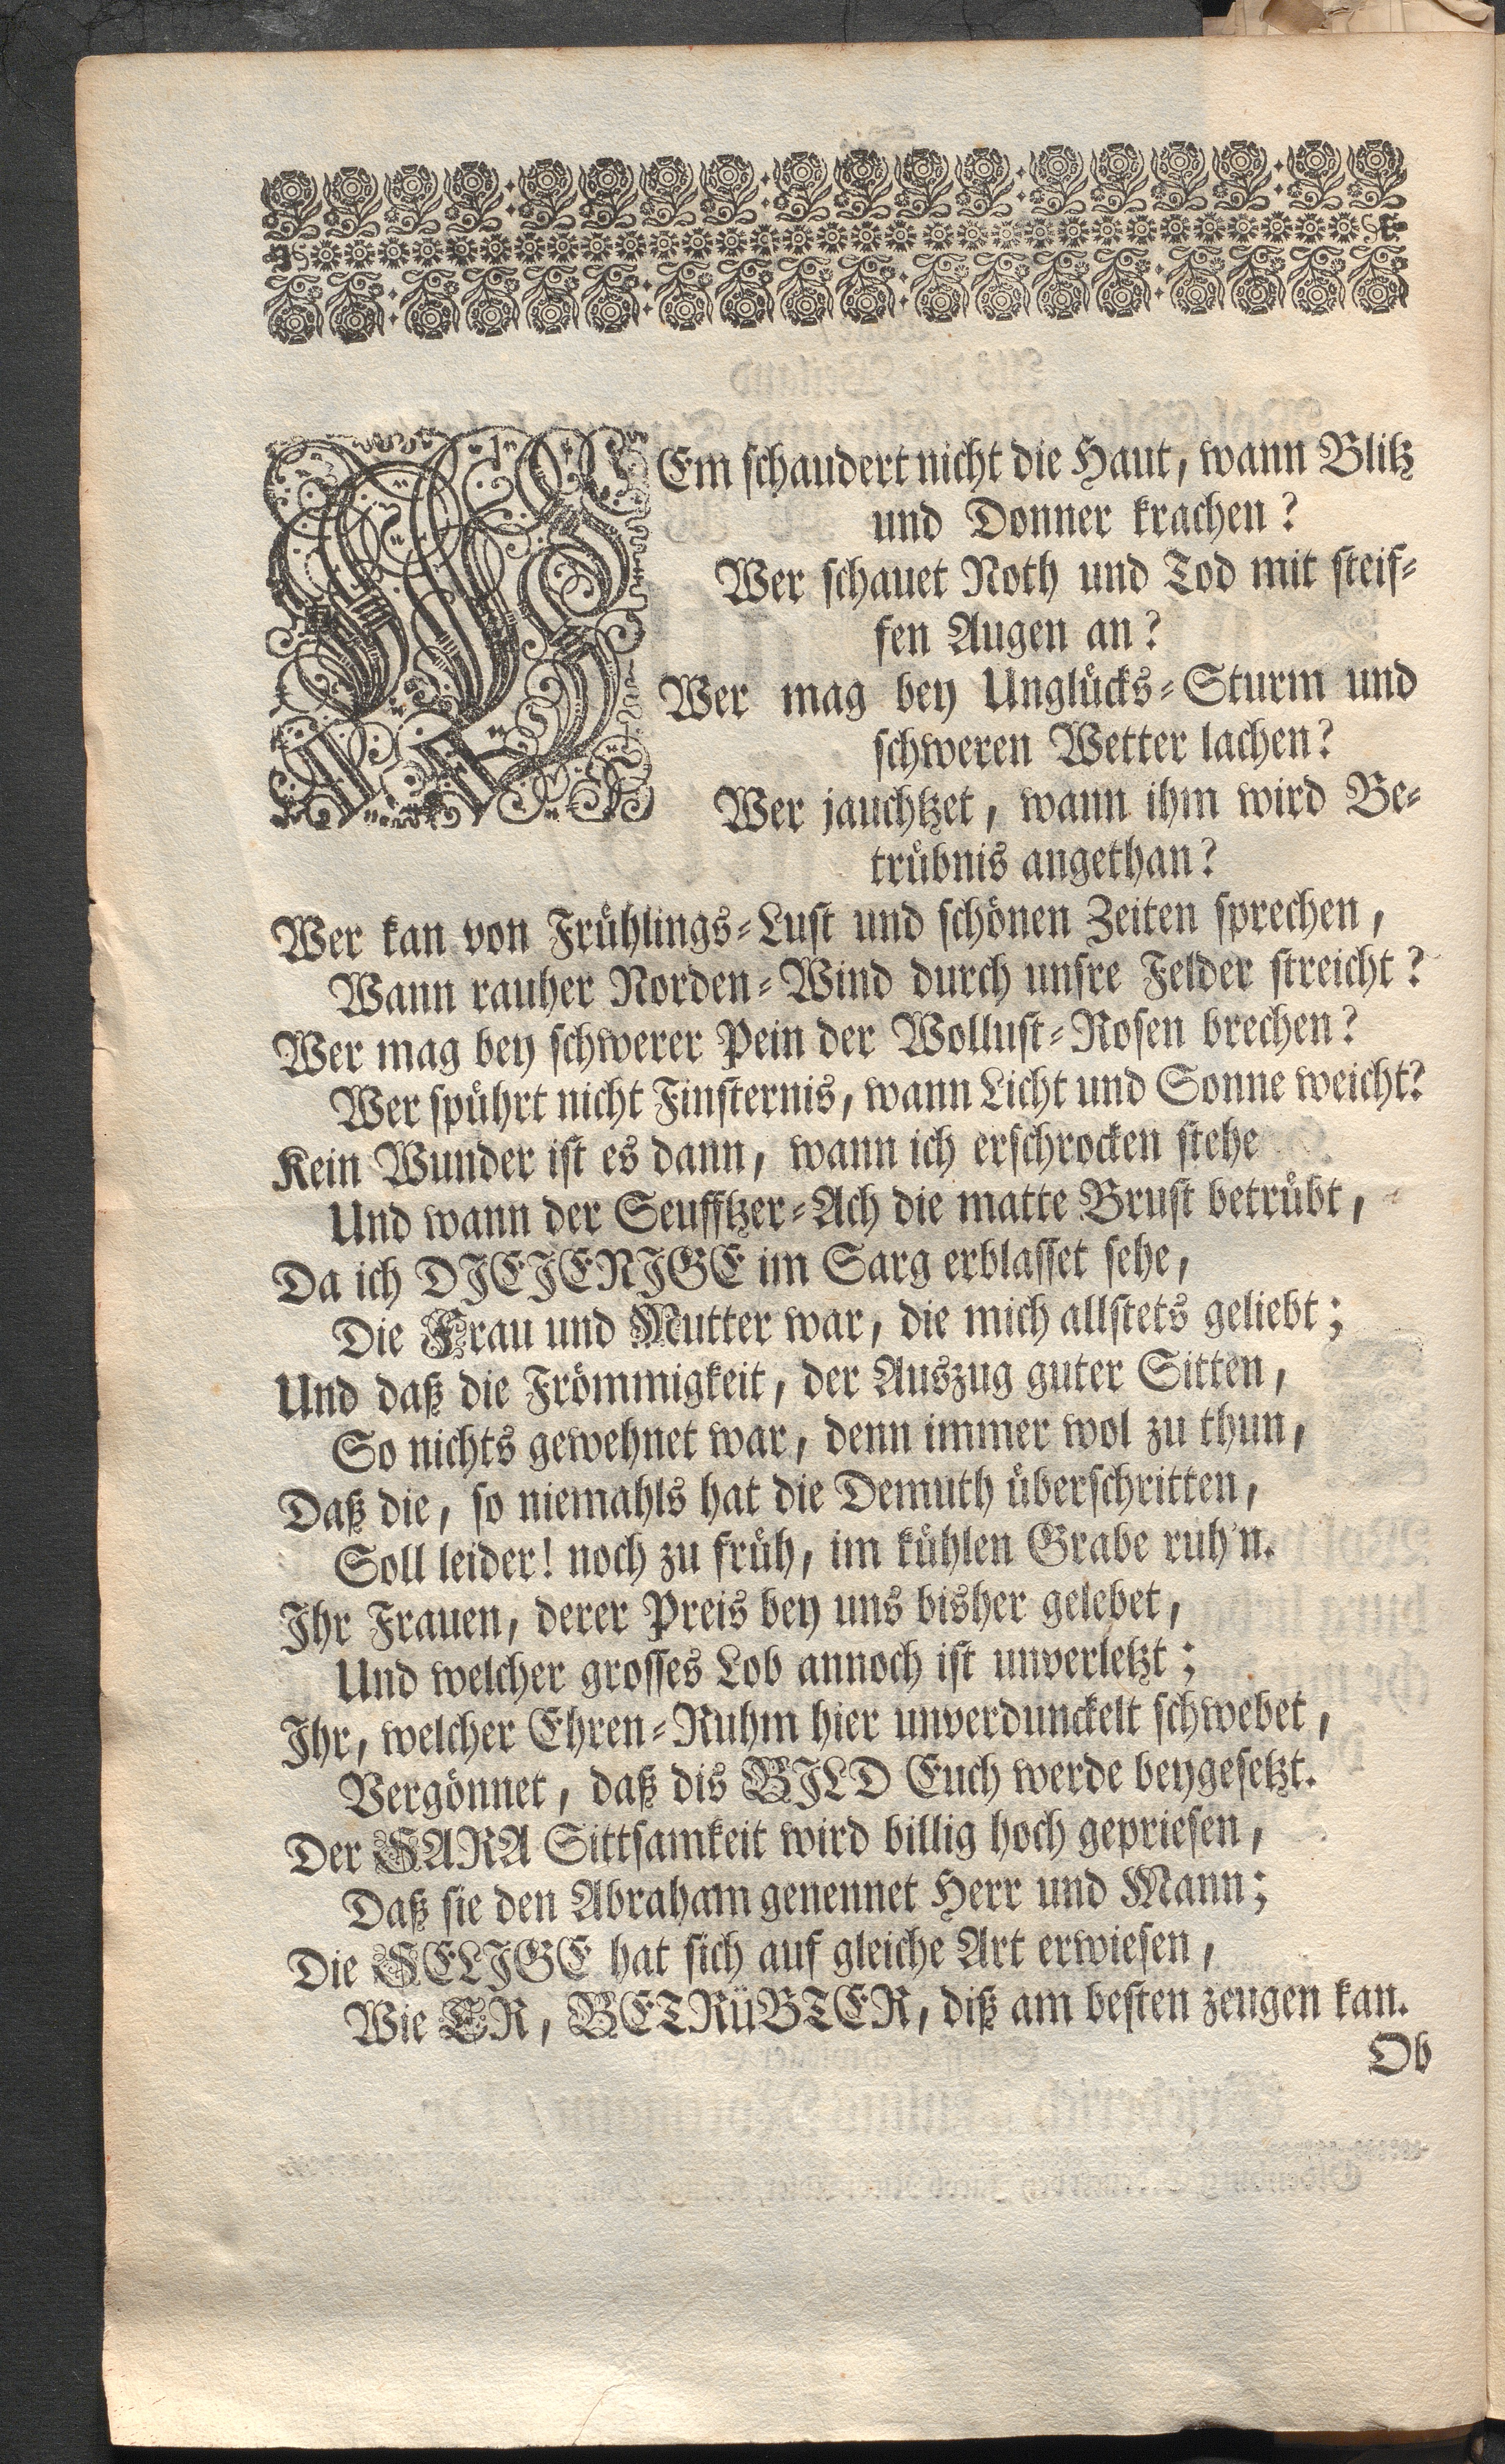 WEm schaudert nicht die Haut, wann Blitz
und Donner krachen?
Wer schauet Noth und Tod mit steif-
fen Augen an?
Wer mag bey Unglücks-Sturm und
schweren Wetter lachen?
Wer jauchtzet, wann ihm wird Be-
trübnis angethan?
Wer kan von Frühlings-Lust und schönen Zeiten sprechen,
Wann rauher Norden-Wind durch unsre Felder streicht?
Wer mag bey schwerer Pein der Wollust-Rosen brechen?
Wer spührt nicht Finsternis, wann Licht und Sonne weicht?
Kein Wunder ist es dann, wann ich erschrocken stehe
Und wann der Seufftzer-Ach die matte Brust betrübt,
Da ich DIEJENIGE im Sarg erblasset sehe,
Die Frau und Mutter war, die mich allstets geliebt;
Und daß die Frömmigkeit, der Auszug guter Sitten,
So nichts gewehnet war, denn immer wol zu thun,
Daß die, so niemahls hat die Demuth überschritten,
Soll leider! noch zu früh, im kühlen Grabe ruh'n.
Ihr Frauen, derer Preis bey uns bisher gelebet,
Und welcher grosses Lob annoch ist unverletzt;
Ihr, welcher Ehren-Ruhm hier unverdunckelt schwebet,
Vergönnet, daß dis BILD Euch werde beygesetzt.
Der SARA Sittsamkeit wird billig hoch gepriesen,
Daß sie den Abraham genennet Herr und Mann;
Die SELIGE hat sich auf gleiche Art erwiesen,
Wie ER, BETRüBTER, diß am besten zeugen kan.
Ob